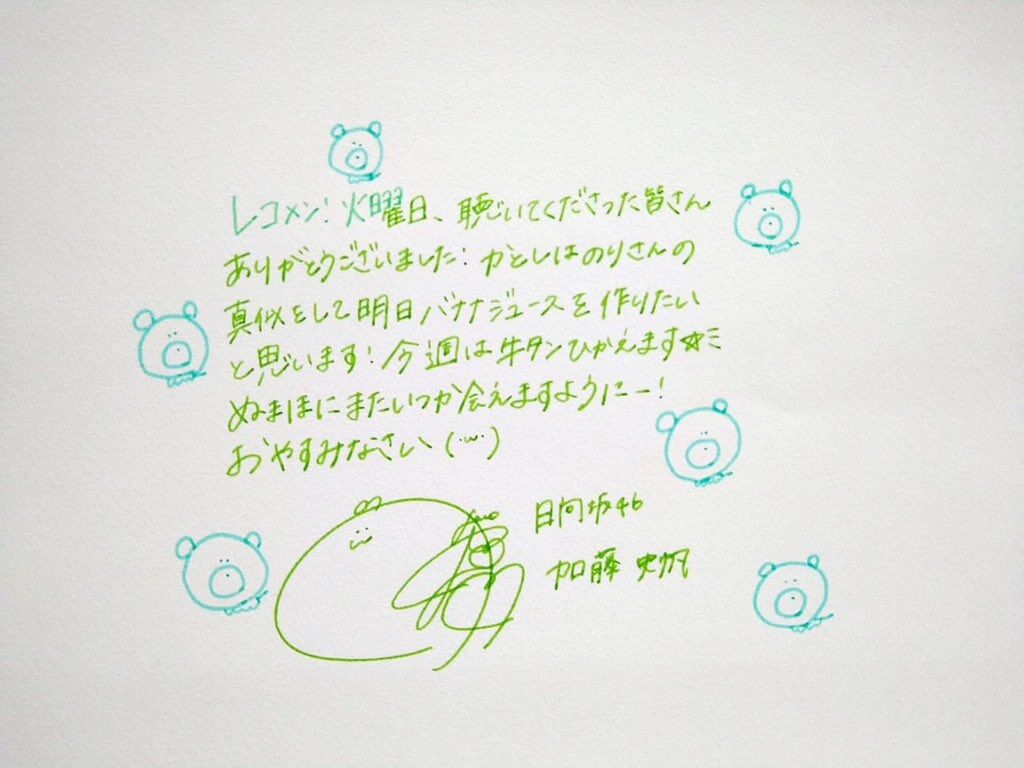 レコメン!火曜日、聴いてくださった皆さん
ありがとうございました!かとしはのりさんの
真似をして明日バナナジュースを作りたい
と思います!今週は牛タンひかえます☆ミ
ぬまほにまたいつか会えますようにー!
おやすみなさい(・ω・)
日向坂46
加藤 史帆